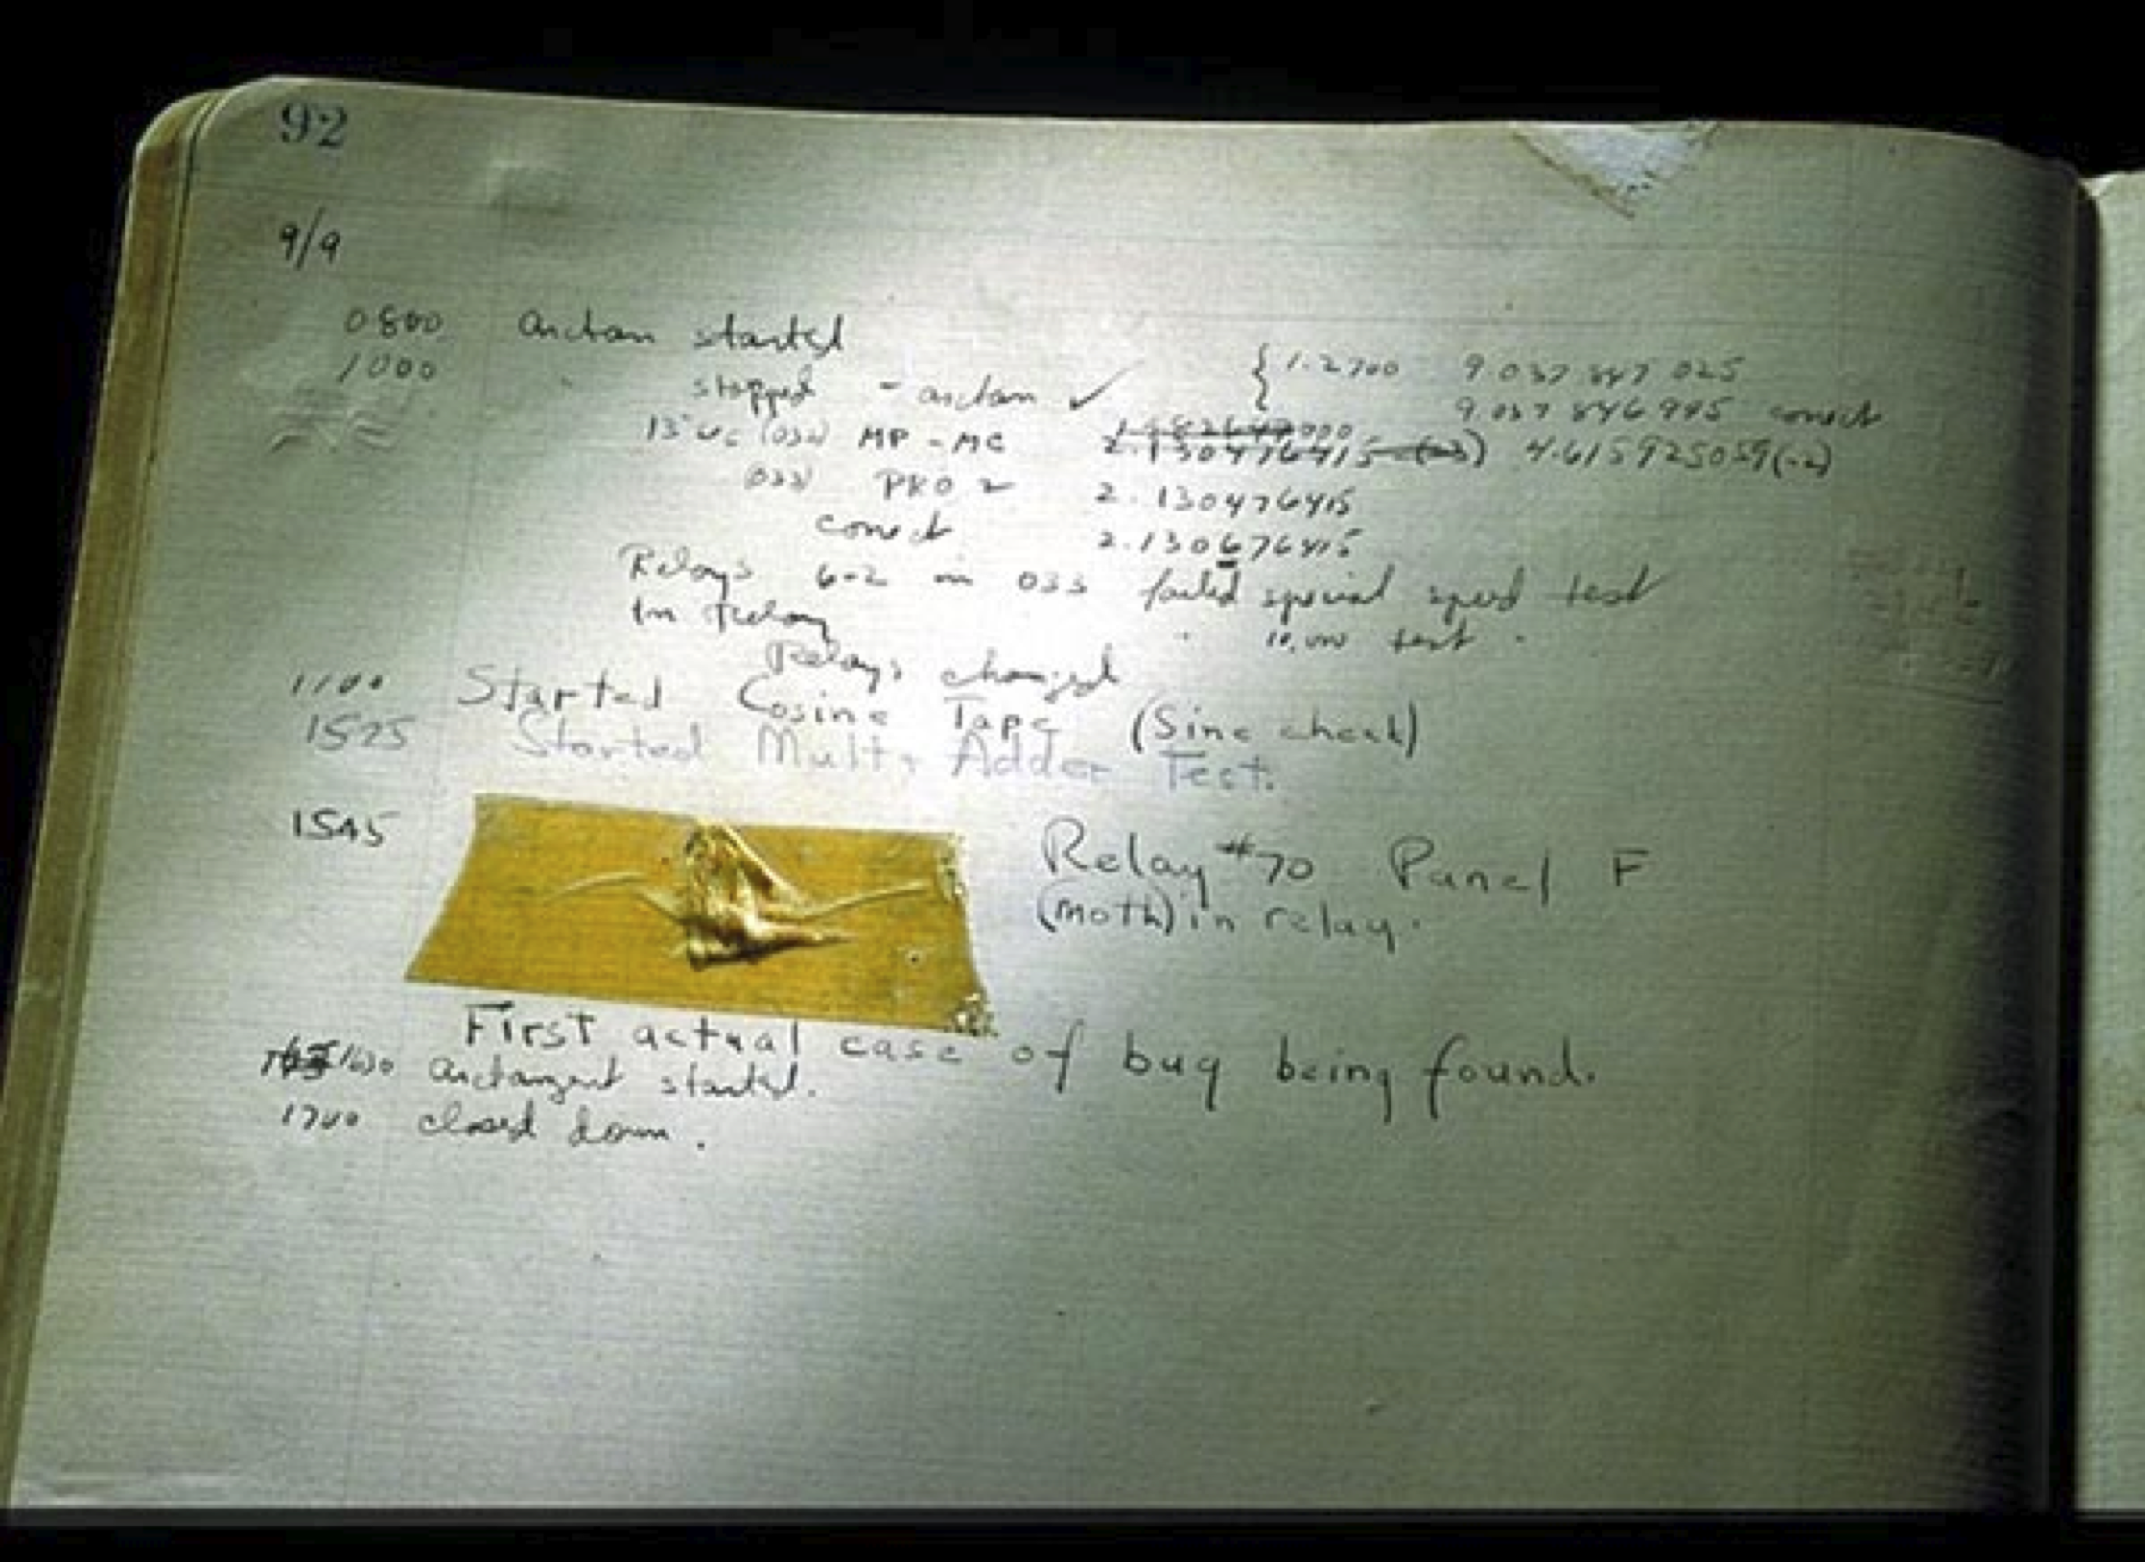 92
9/9
0800 Antan started
1000 stopped - antan ✓ { 1.2700 9.037 847 025
9.037 846 995 correct
13"uc (032) MP - MC 2.130476415 (-3) 4.615925059(-2)
(033) PRO 2 2.130476415
correct 2.130676415
Relays 6-2 in 033 failed special speed test
In Relay " 10,000 test "
Relays changed
1100 Started Cosine Tape (Sine check)
1525 Started Mult+Adder Test.
1545 Relay #70 Panel F
(moth) in relay.
First actual case of bug being found.
1630 Antangent started.
1700 closed down.